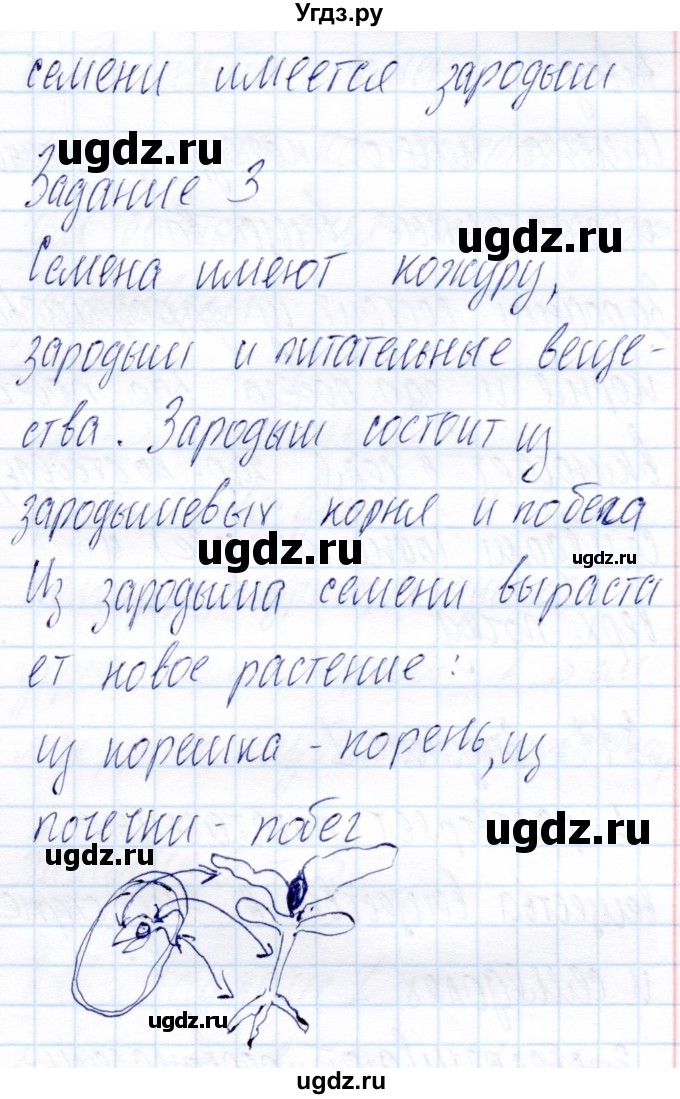 Угдз.ру
семени имеется зародыш
ugdz.ru
Задание 3
ugdz.ru
Семена имеют кожуру,
зародыш и питательные веще-
ства. Зародыш состоит из
зародышевых корня и побега
ugdz.ru
ugdz.ru
Из зародыша семени выраста
ет новое растение:
из корешка - корень, из
почечки - побег
ugdz.ru
ugdz.ru
ugdz.ru
ugdz.ru